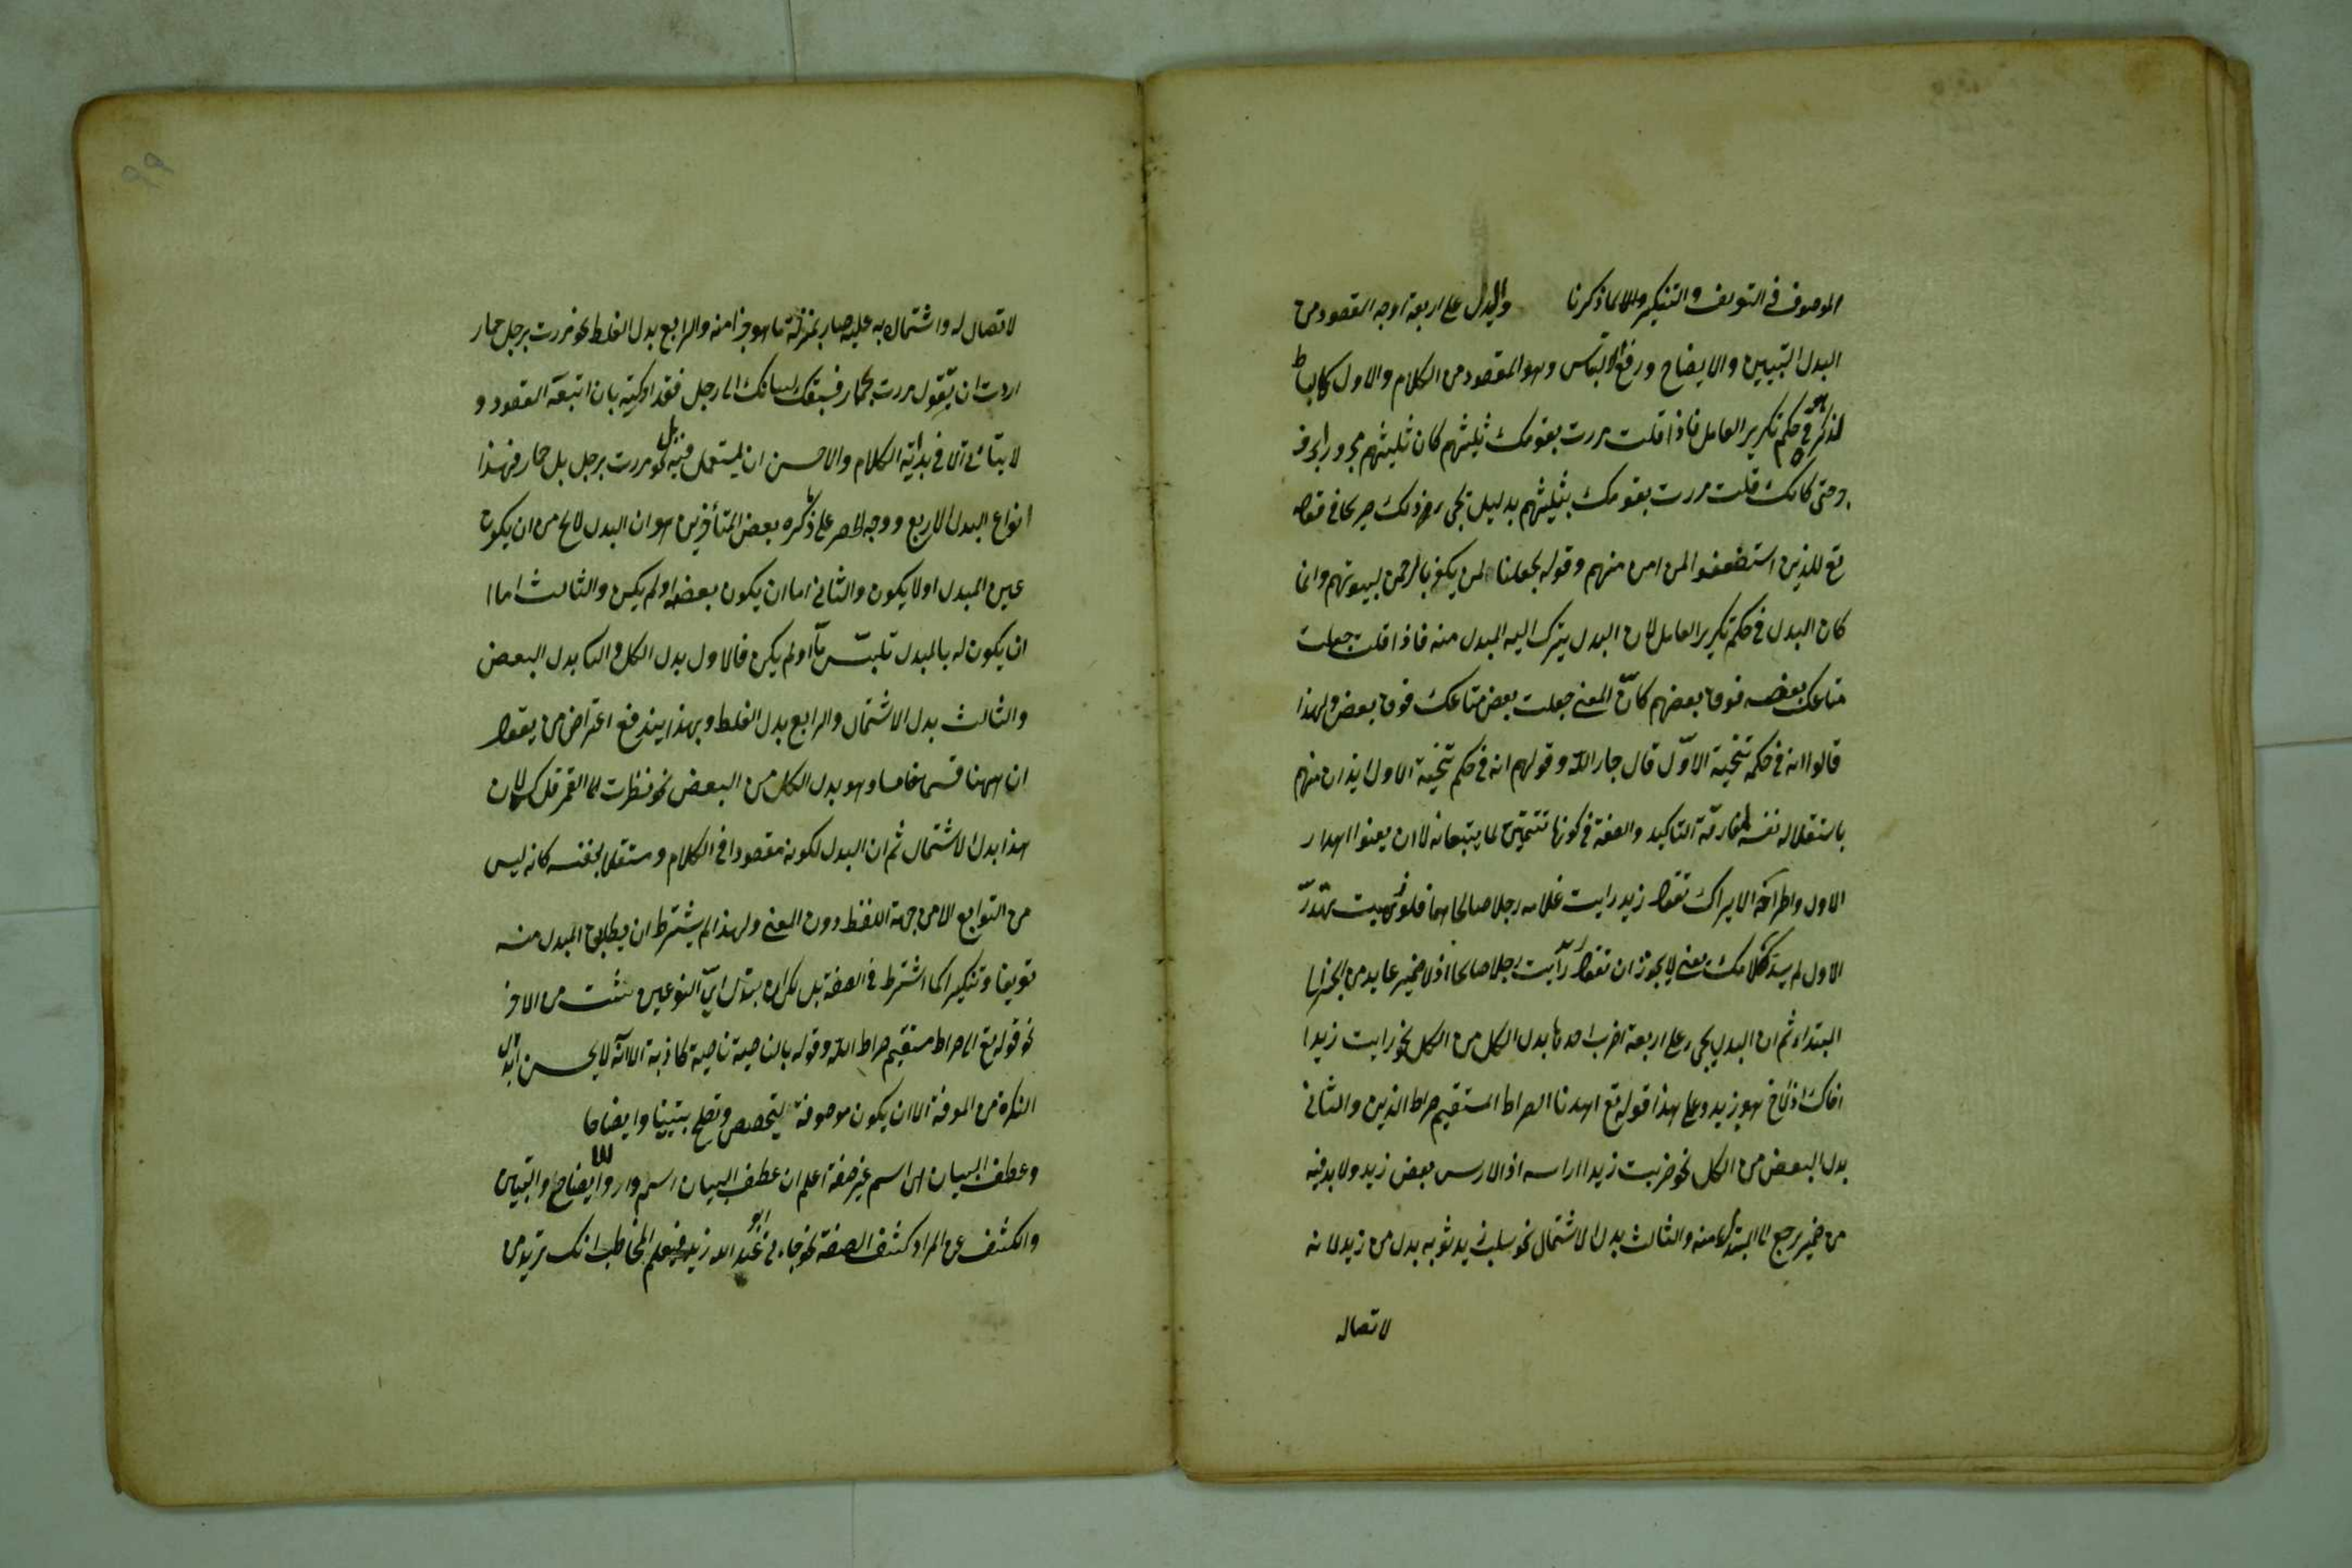 الموصوف فى التعريف والتنكير والا لما ذكرنا والبدل على اربعة اوجه المقصود من
البدل التبيين والايضاح ورفع الالتباس وهو المقصود من الكلام والاول كالبساط
لذكره هو فى حكم تكرير العامل فاذا قلت مررت بقومك ثلثيهم كان ثلثيهم مجرورا بحرف
وحتى كانك قلت مررت بقومك بثلثيهم بدليل مجى ذلك صريحا فى قوله
تع للذين استضعفوا لمن امن منهم وقوله لجعلنا لمن يكفر بالرحمن لبيوتهم وانما
كان البدل فى حكم تكرير العامل لان البدل يترك اليه المبدل منه فاذا قلت جعلت
متاعك بعضه فوق بعضهم كان المعنى جعلت بعض متاعك فوق بعض ولهذا
قالوا انه فى حكم تنحية الاول قال جار الله وقولهم انه فى حكم تنحية الاول ايذان منهم
باستقلاله بنفسه ومفارقته التاكيد والصفة فى كونهما تتمتين لما يتبعانه لا ان يعنوا اهدار
الاول واطراحه الا يراك تقول زيد رايت غلامه رجلا صالحا فلو ذهبت تهدر
الاول لم يسد كلامك يعنى لا يجوز ان تقول زيد رايت رجلا صالحا اذ لا ضمير عايد من الخبر الى
المبتداء ثم ان البدل يجى على اربعة اضرب احدها بدل الكل من الكل نحو رايت زيدا
اخاك اذ الاخ هو زيد وعلى هذا قوله تع اهدنا الصراط المستقيم صراط الذين والثانى
بدل البعض من الكل نحو ضربت زيدا راسه اذ الراس بعض زيد ولا بد فيه
من ضمير يرجع الى المبدل منه والثالث بدل الاشتمال نحو سلب زيد ثوبه بدل من زيد لانه
لاتصاله
لاتصاله واشتماله به عليه صار بمنزلة ما هو جزا منه والرابع بدل الغلط نحو مررت برجل حمار
اردت ان تقول مررت بحمار فسبقك لسانك الى رجل فقد اركته بان اتبعته المقصود و
لا يتاتى الا فى بداية الكلام والاحسن ان يستعمل فيه بل نحو مررت برجل بل حمار فهذا
انواع البدل الاربع ووجه الحصر على ما ذكره بعض المتأخرين هو ان البدل لا يخ من ان يكون
عين المبدل او لا يكون والثانى اما ان يكون بعضه او لم يكن والثالث اما
ان يكون له بالمبدل تلبس ما او لم يكن فالاول بدل الكل والثا بدل البعض
والثالث بدل الاشتمال والرابع بدل الغلط وبهذا يندفع اعتراض من يقول
ان ههنا قسما خامسا وهو بدل الكل من البعض نحو نظرت الى القمر فلكه لان
هذا بدل الاشتمال ثم ان البدل لكونه مقصودا فى الكلام ومستقلا بنفسه كانه ليس
من التوابع الا من جهة اللفظ دون المعنى ولهذا لم يشترط ان يطابق المبدل منه
تعريفا وتنكيرا كما اشترط فى الصفة بل لك ان تبدل اى النوعين شئت من الاخر
نحو قوله تع الى صراط مستقيم صراط الله وقوله بالناصية ناصية كاذبة الا انه لا يحسن ابدال
النكرة من المعرفة الا ان يكون موصوفة ليتخصص وتصلح تبيينا وايضاحا
وعطف البيان هو اسم غير صفة اعلم ان عطف البيان اسم وارد للايضاح والتبيين
والكشف عن المراد كشف الصفة نحو جاءنى ابو عبد الله زيد فيعلم المخاطب انك تريد من
٩٩